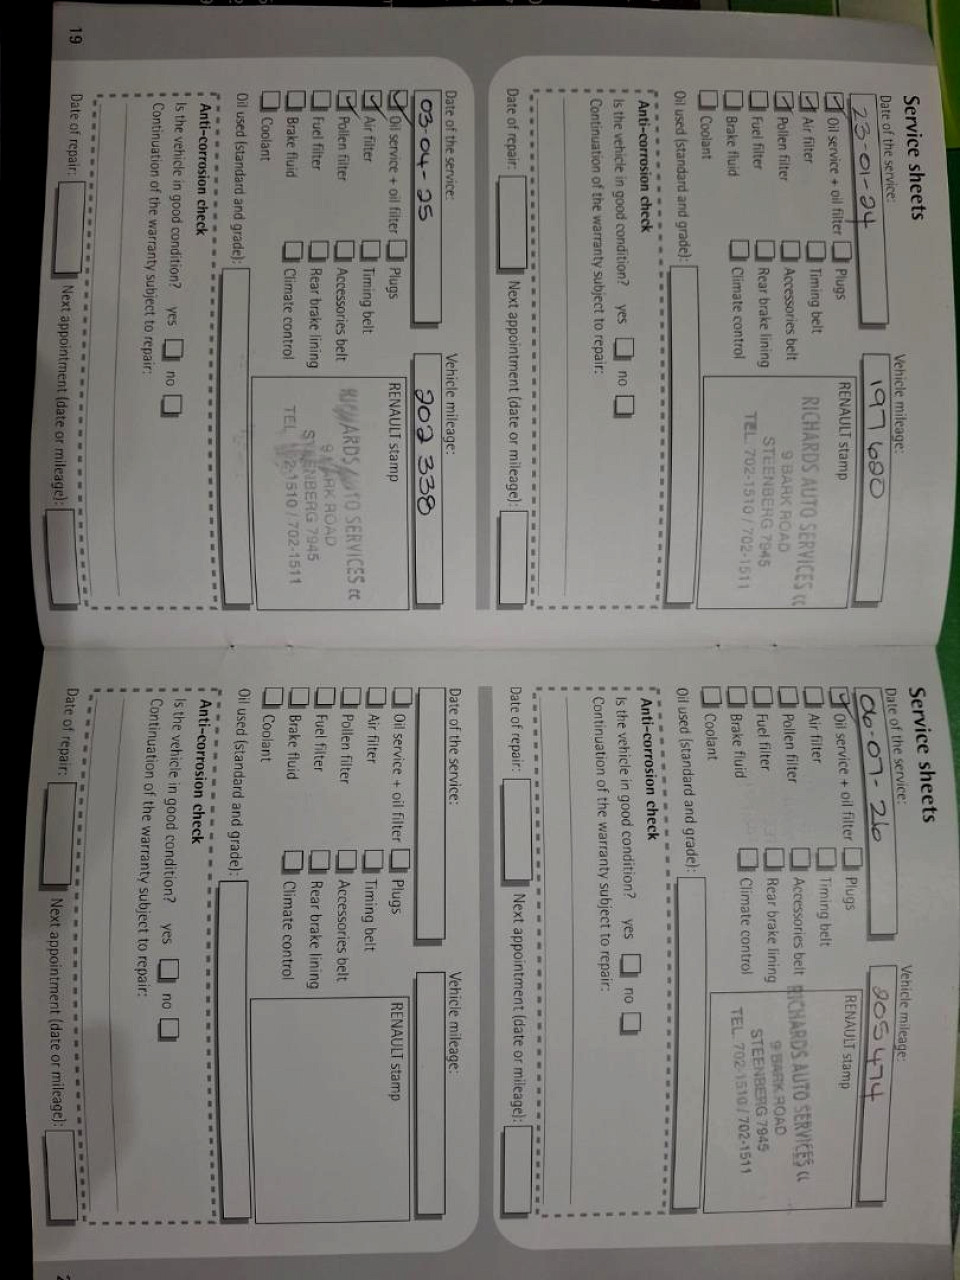 Service sheets
Date of the service:
Vehicle mileage:
23-01-24
197 680
Oil service + oil filter
Plugs
RENAULT stamp
Air filter
Timing belt
RICHARDS AUTO SERVICES cc
Pollen filter
Accessories belt
9 BARK ROAD
Fuel filter
Rear brake lining
STEENBERG 7945
Brake fluid
Climate control
TEL. 702-1510 / 702-1511
Coolant
Oil used (standard and grade):
Anti-corrosion check
Is the vehicle in good condition? yes no
Continuation of the warranty subject to repair:
Date of repair:
Next appointment (date or mileage):
Date of the service:
Vehicle mileage:
03-04-25
202 338
Oil service + oil filter
Plugs
RENAULT stamp
Air filter
Timing belt
RICHARDS AUTO SERVICES cc
Pollen filter
Accessories belt
9 BARK ROAD
Fuel filter
Rear brake lining
STEENBERG 7945
Brake fluid
Climate control
TEL 702-1510 / 702-1511
Coolant
Oil used (standard and grade):
Anti-corrosion check
Is the vehicle in good condition? yes no
Continuation of the warranty subject to repair:
Date of repair:
Next appointment (date or mileage):
19
Service sheets
Date of the service:
Vehicle mileage:
06-07-26
205474
Oil service + oil filter
Plugs
RENAULT stamp
Air filter
Timing belt
RICHARDS AUTO SERVICES cc
Pollen filter
Accessories belt
9 BARK ROAD
Fuel filter
Rear brake lining
STEENBERG 7945
Brake fluid
Climate control
TEL. 702-1510 / 702-1511
Coolant
Oil used (standard and grade):
Anti-corrosion check
Is the vehicle in good condition? yes no
Continuation of the warranty subject to repair:
Date of repair:
Next appointment (date or mileage):
Date of the service:
Vehicle mileage:
Oil service + oil filter
Plugs
RENAULT stamp
Air filter
Timing belt
Pollen filter
Accessories belt
Fuel filter
Rear brake lining
Brake fluid
Climate control
Coolant
Oil used (standard and grade):
Anti-corrosion check
Is the vehicle in good condition? yes no
Continuation of the warranty subject to repair:
Date of repair:
Next appointment (date or mileage):